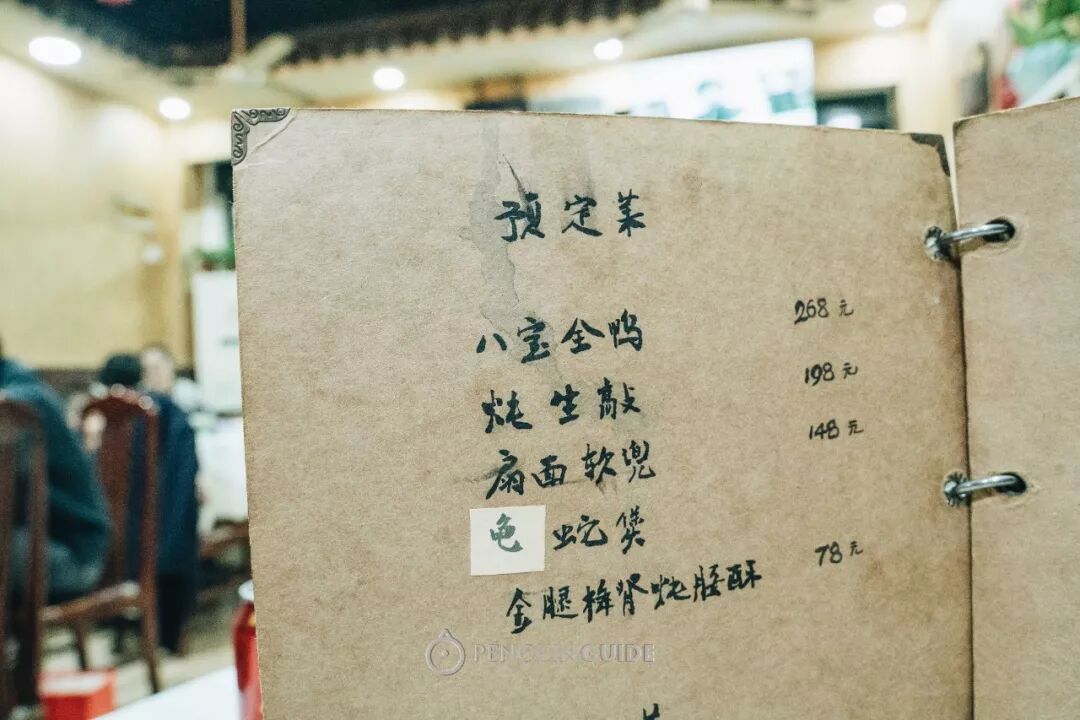 预定菜
八宝全鸭 268元
炖生敲 198元
扇面软兜 148元
龟蛇煲
金腿梅肾炖腰酥 78元
PENGUIN GUIDE